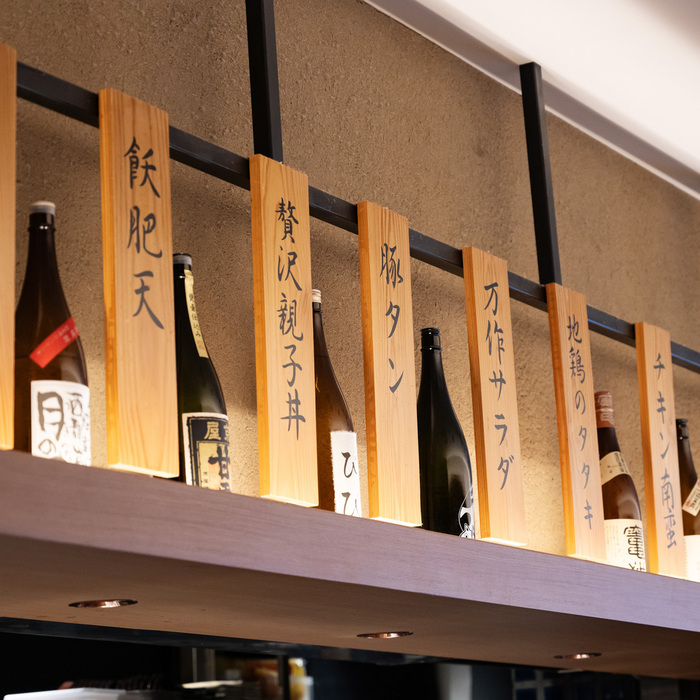 飫肥天
贅沢親子丼
豚タン
万作サラダ
地鶏のタタキ
チキン南蛮
月の
屋
甘
ひひ